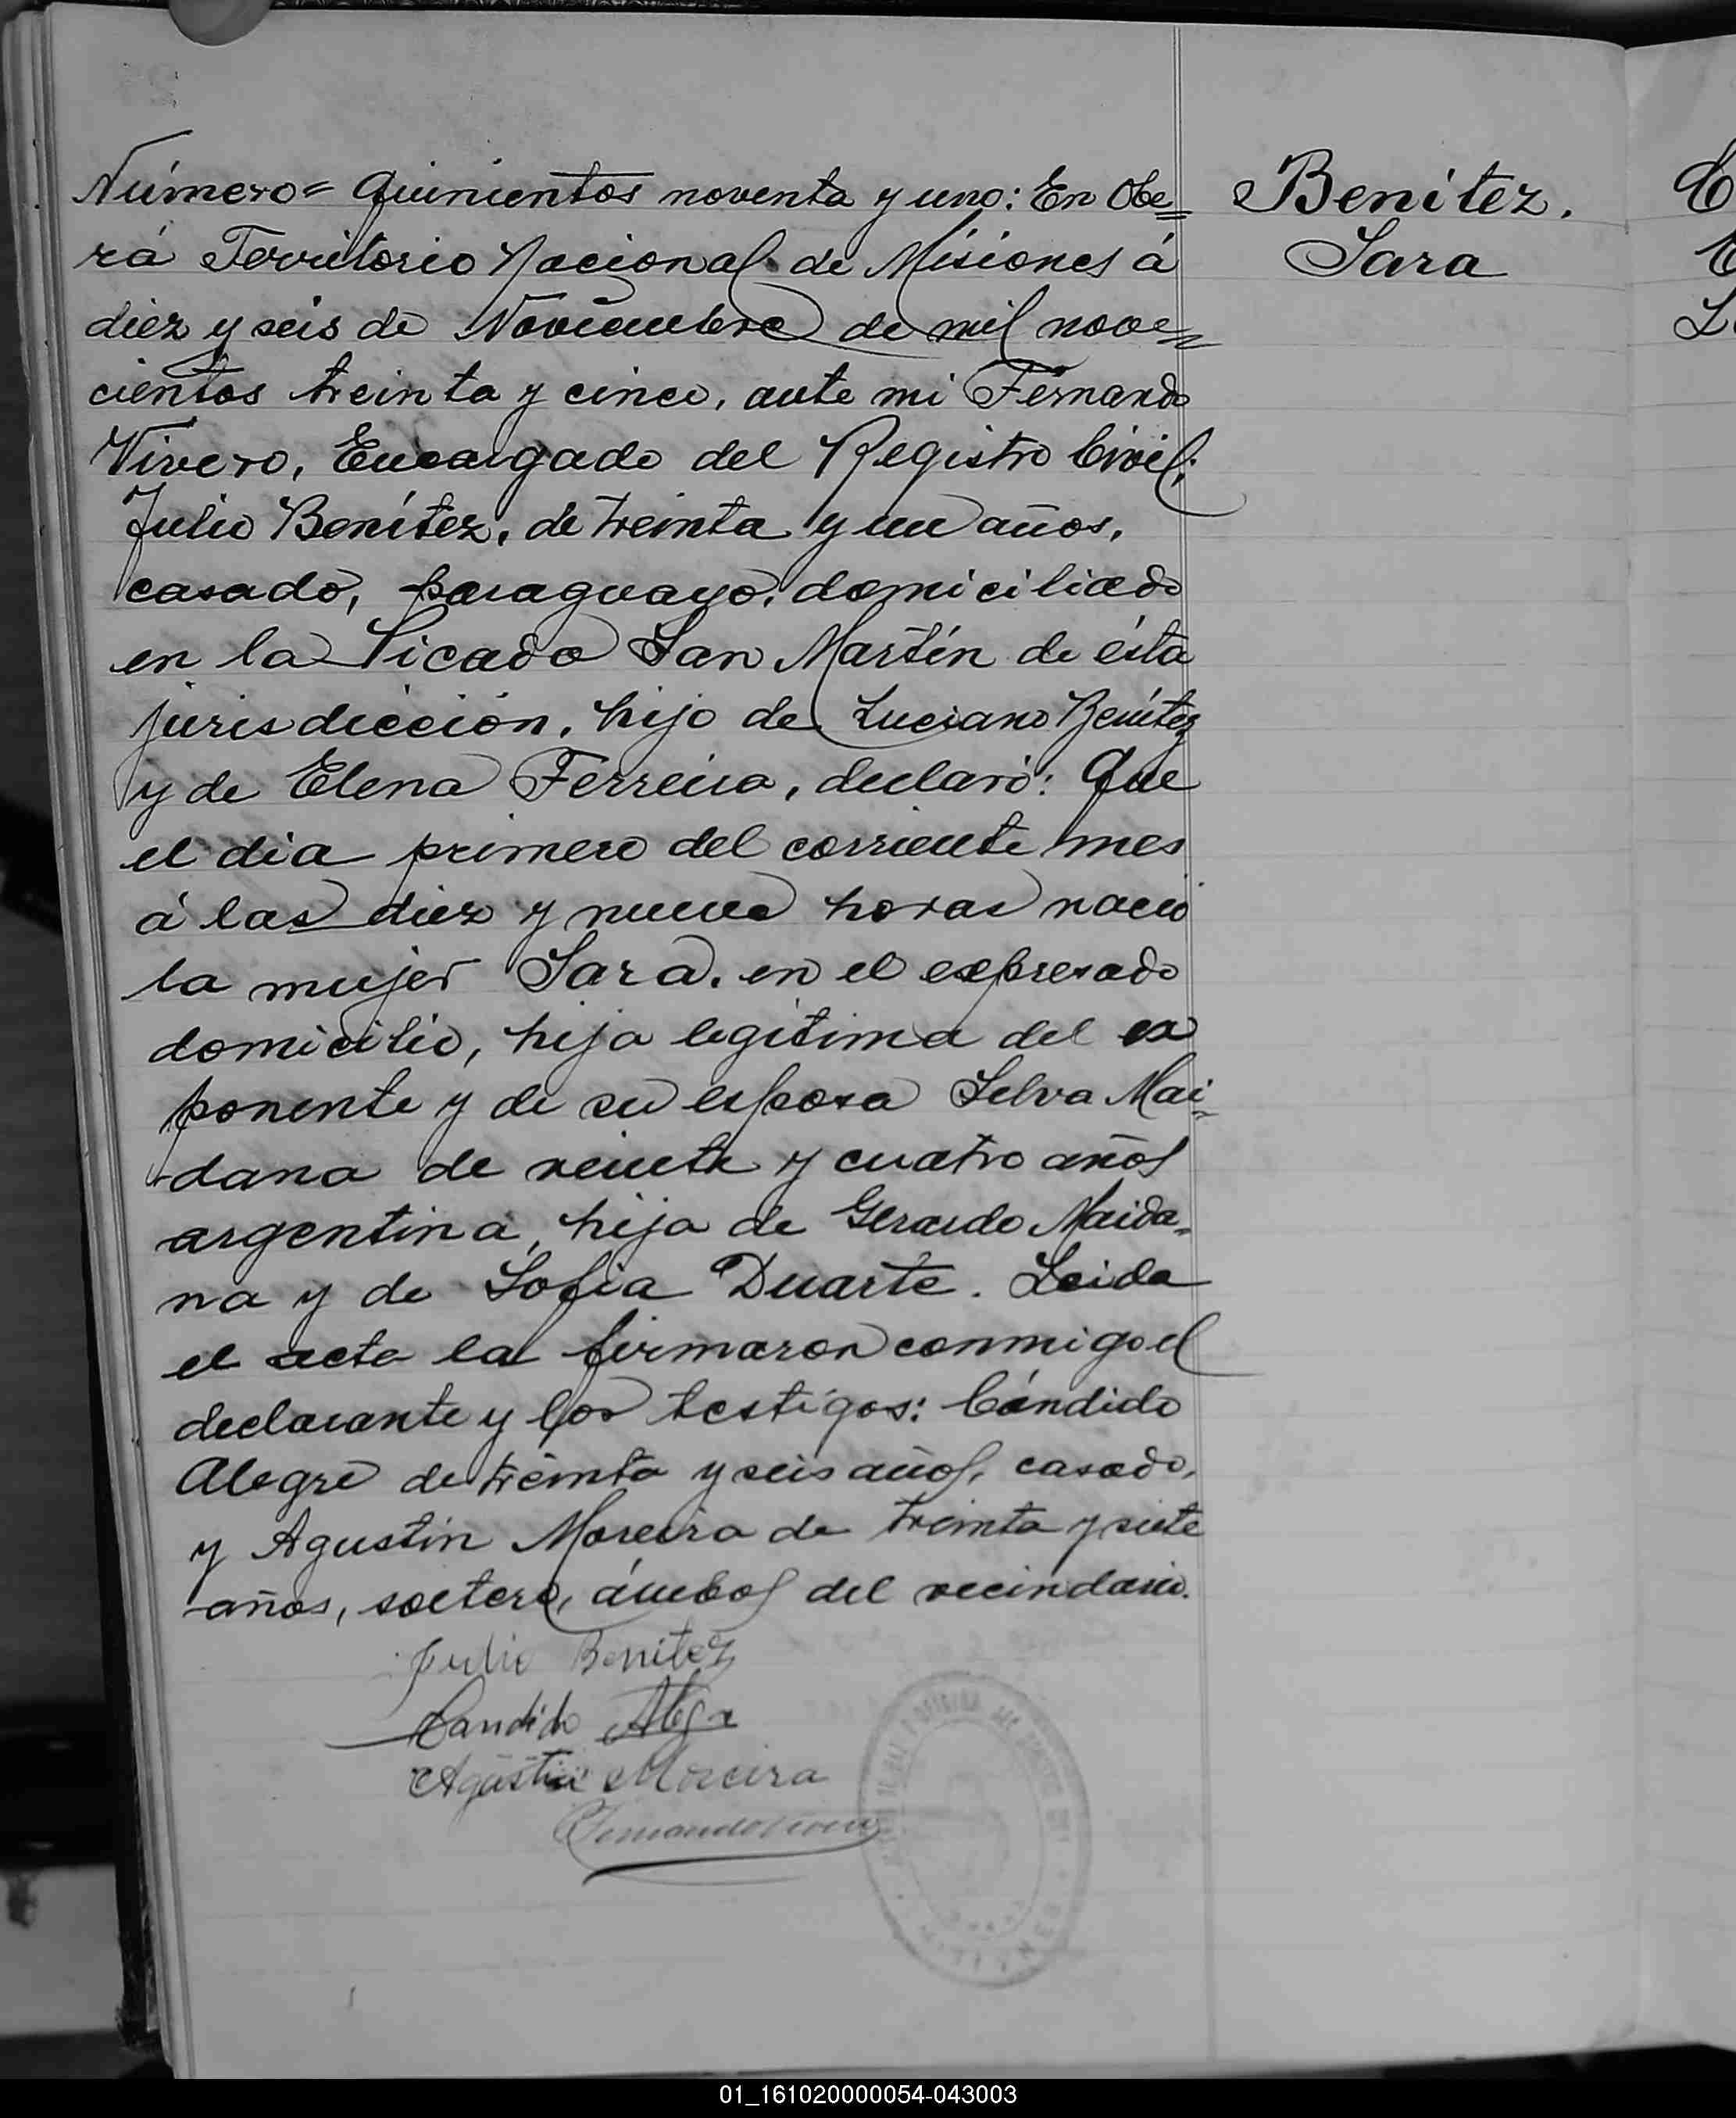 Número= Quinientos noventa y uno: En Obe=
rá Territorio Nacional de Misiones á
diez y seis de Noviembre de mil nove=
cientos treinta y cinco, ante mi Fernando
Vivero, Encargado del Registro Civil;
Julio Benítez, de treinta y un años,
casado, paraguayo, domiciliado
en la Picada San Martín de ésta
jurisdicción, hijo de Luciano Benítez
y de Elena Ferreira, declaró: Que
el dia primero del corriente mes
á las diez y nueve horas nació
la mujer Sara, en el expresado
domicilio, hija legítima del ex
ponente y de su esposa Selva Mai-
dana de veinte y cuatro años
argentina, hija de Gerardo Maida-
na y de Sofia Duarte. Leida
el acta la firmaron conmigo el
declarante y los testigos: Cándido
Alegre de treinta y seis años, casado,
y Agustin Moreira de treinta y siete
años, soltero, ámbos del vecindario.
Julio Benitez
Candido Alegre
Agustin Moreira
Fernando Vivero
MISIONES
Benítez.
Sara
01_161020000054-043003